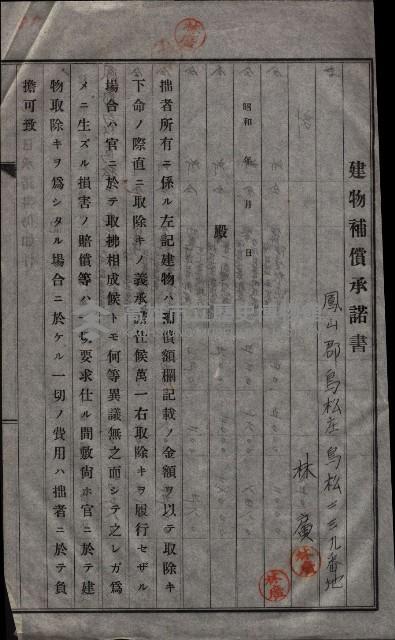 建物補償承諾書
鳳山郡鳥松庄鳥松二三九番地
林廣
林廣
林廣
拙者所有ニ係ル左記建物ハ補償額欄記載ノ金額ヲ以テ取除キ
下命ノ際直ニ取除キノ義承諾仕候萬一右取除キヲ履行セザル
場合ハ官ニ於テ取拂相成候トモ何等異議無之而シテ之レガ爲
メニ生ズル損害ノ賠償等ハ一切要求仕ル間敷尙ホ官ニ於テ建
物取除キヲ爲シタル場合ニ於ケル一切ノ費用ハ拙者ニ於テ負
擔可致
昭和 年 月 日
殿
林廣